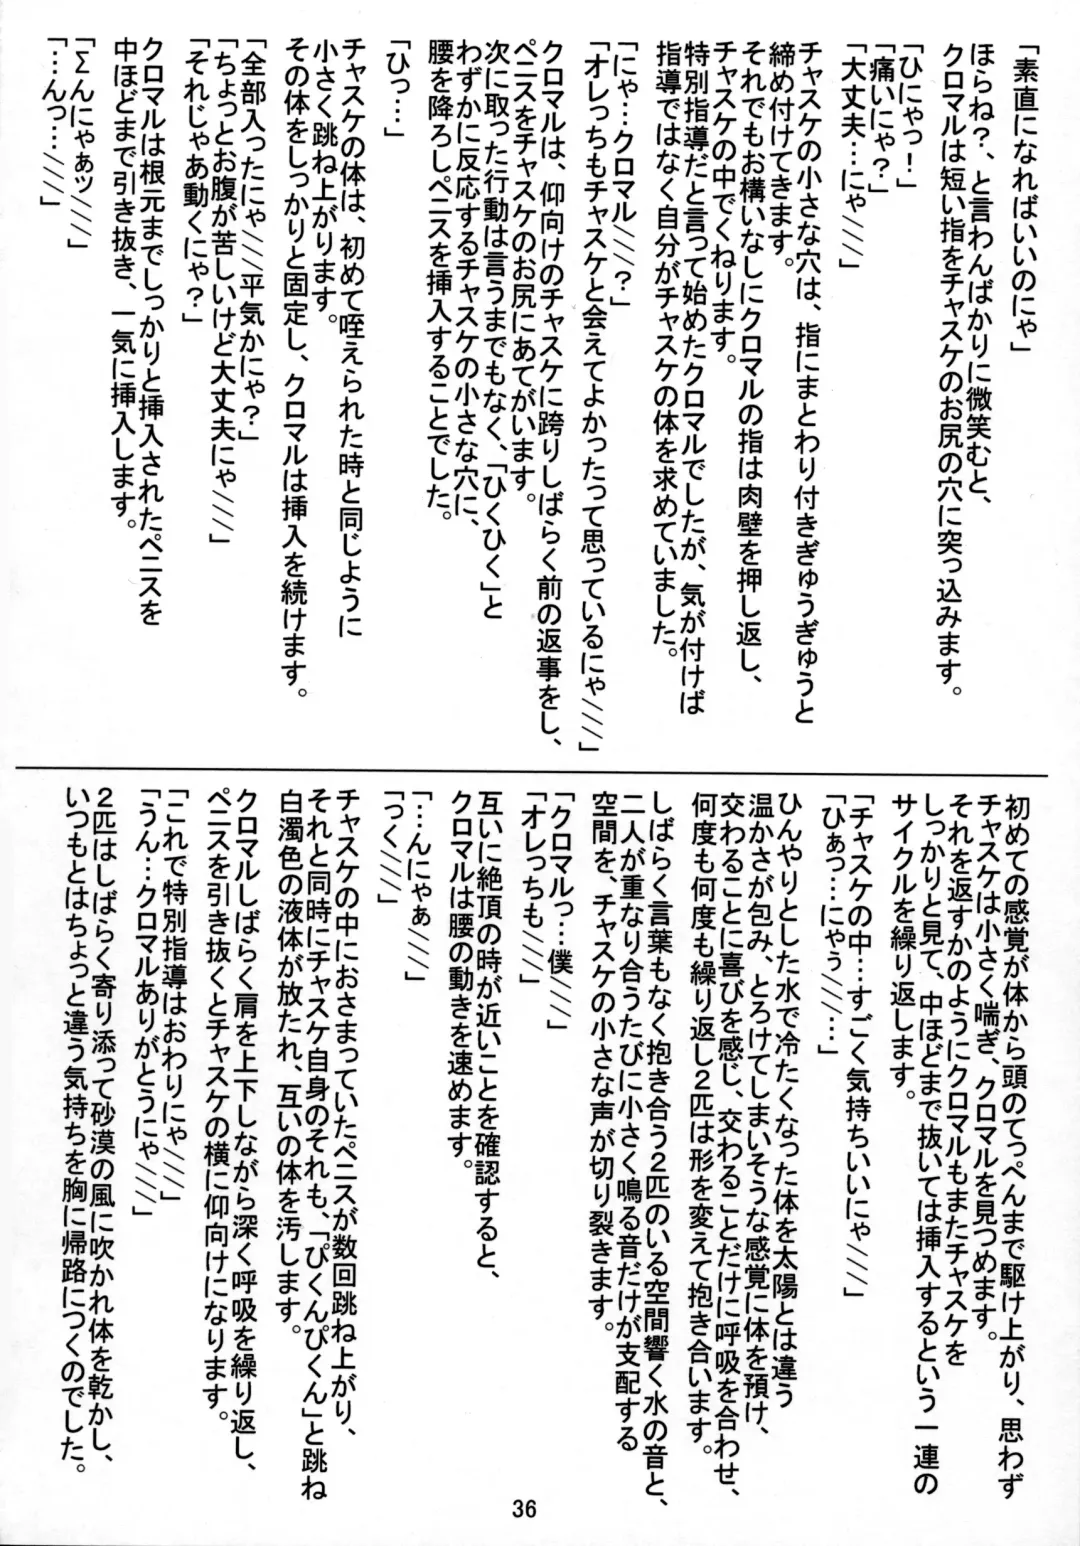 「素直になればいいのにゃ」
ほらね？、と言わんばかりに微笑むと、
クロマルは短い指をチャスケのお尻の穴に突っ込みます。
「ひにゃっ！」
「痛いにゃ？」
「大丈夫…にゃ///」
チャスケの小さな穴は、指にまとわり付きぎゅうぎゅうと
締め付けてきます。
それでもお構いなしにクロマルの指は肉壁を押し返し、
チャスケの中でくねります。
特別指導だと言って始めたクロマルでしたが、気が付けば
指導ではなく自分がチャスケの体を求めていました。
「にゃ…クロマル///？」
「オレっちもチャスケと会えてよかったって思っているにゃ///」
クロマルは、仰向けのチャスケに跨りしばらく前の返事をし、
ペニスをチャスケのお尻にあてがいます。
次に取った行動は言うまでもなく、「ひくひく」と
わずかに反応するチャスケの小さな穴に、
腰を降ろしペニスを挿入することでした。
「ひっ…」
チャスケの体は、初めて咥えられた時と同じように
小さく跳ね上がります。
その体をしっかりと固定し、クロマルは挿入を続けます。
「全部入ったにゃ///平気かにゃ？」
「ちょっとお腹が苦しいけど大丈夫にゃ///」
「それじゃあ動くにゃ？」
クロマルは根元までしっかりと挿入されたペニスを
中ほどまで引き抜き、一気に挿入します。
「Σんにゃぁッ///」
「…んっ…///」
初めての感覚が体から頭のてっぺんまで駆け上がり、思わず
チャスケは小さく喘ぎ、クロマルを見つめます。
それを返すかのようにクロマルもまたチャスケを
しっかりと見て、中ほどまで抜いては挿入するという一連の
サイクルを繰り返します。
「チャスケの中…すごく気持ちいいにゃ///」
「ひぁっ…にゃぅ///…」
ひんやりとした水で冷たくなった体を太陽とは違う
温かさが包み、とろけてしまいそうな感覚に体を預け、
交わることに喜びを感じ、交わることだけに呼吸を合わせ、
何度も何度も繰り返し２匹は形を変えて抱き合います。
しばらく言葉もなく抱き合う２匹のいる空間響く水の音と、
二人が重なり合うたびに小さく鳴る音だけが支配する
空間を、チャスケの小さな声が切り裂きます。
「クロマルっ…僕///」
「オレっちも///」
互いに絶頂の時が近いことを確認すると、
クロマルは腰の動きを速めます。
「…んにゃぁ///」
「つく///」
チャスケの中におさまっていたペニスが数回跳ね上がり、
それと同時にチャスケ自身のそれも、「ぴくんぴくん」と跳ね
白濁色の液体が放たれ、互いの体を汚します。
クロマルしばらく肩を上下しながら深く呼吸を繰り返し、
ペニスを引き抜くとチャスケの横に仰向けになります。
「これで特別指導はおわりにゃ///」
「うん…クロマルありがとうにゃ///」
２匹はしばらく寄り添って砂漠の風に吹かれ体を乾かし、
いつもとはちょっと違う気持ちを胸に帰路につくのでした。
36